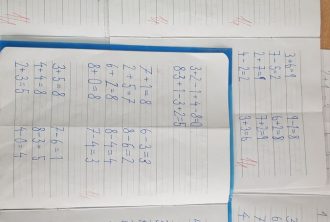 3+6=9 9-1=8
7-5=2 6+2=8
2+7=9 7+2=9
4-2=2 3+3=6
3+2-1+4-8=0
8-3+1-3+2=5
7+1=8 6-3=3
2+5=7 8-6=2
6+2=8 8-4=4
8+0=8 7-4=3
3+5=8 7-6=1
4+4=8 8-3=5
2+3=5 4-0=4